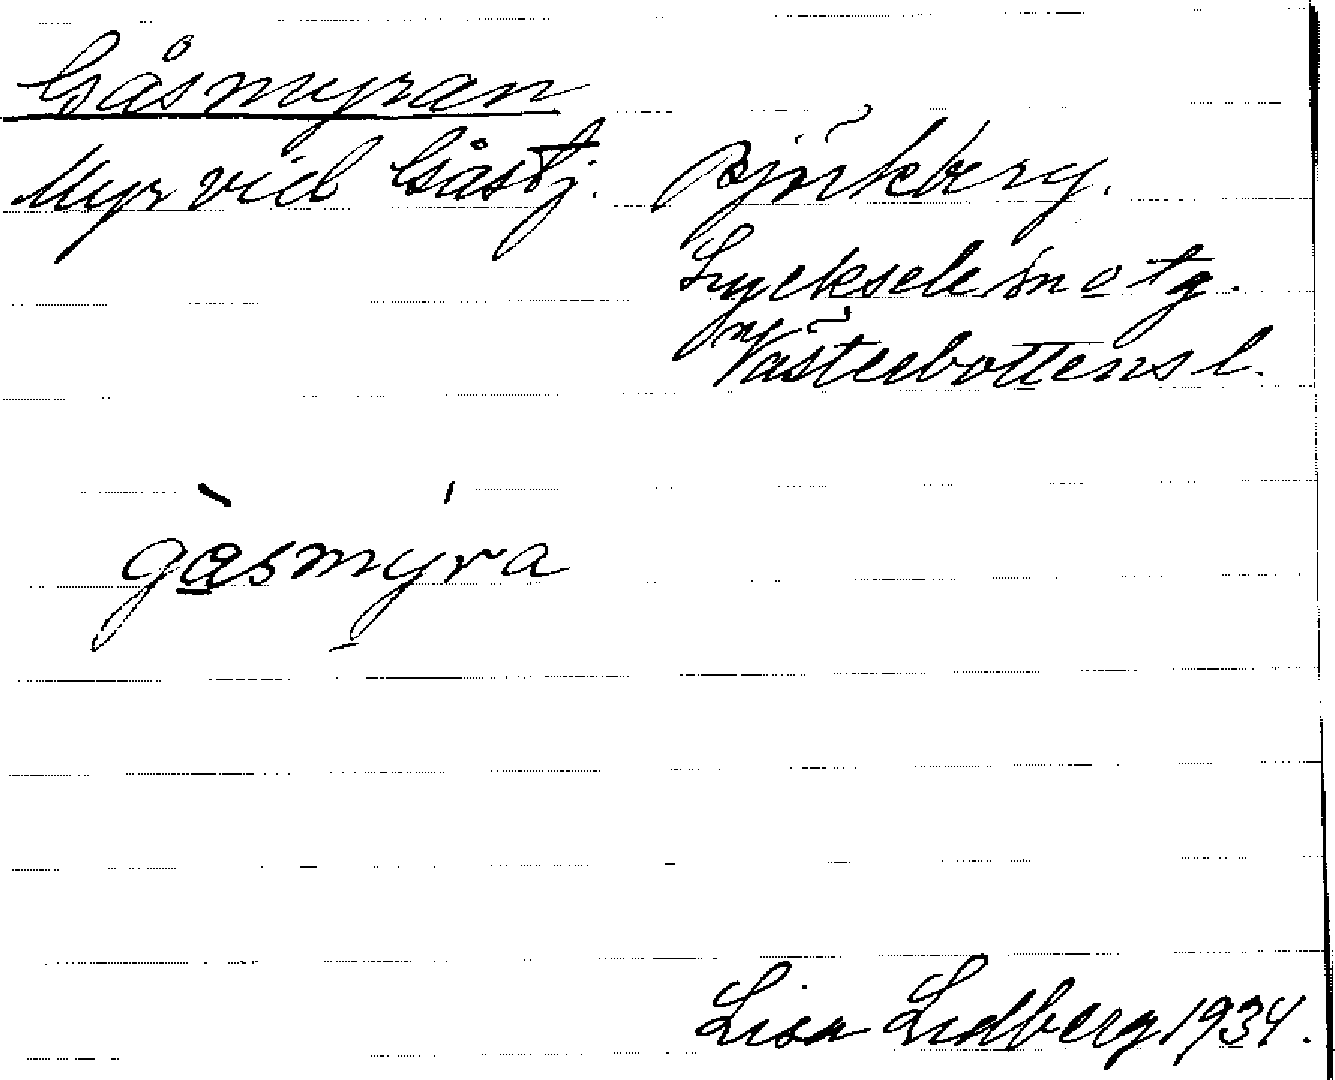 Gåsmyran
Myr vid Gåstj. Björkberg.
Lycksele
Västerbottens l.
gàsmýra
Lisa Lidberg 1934.